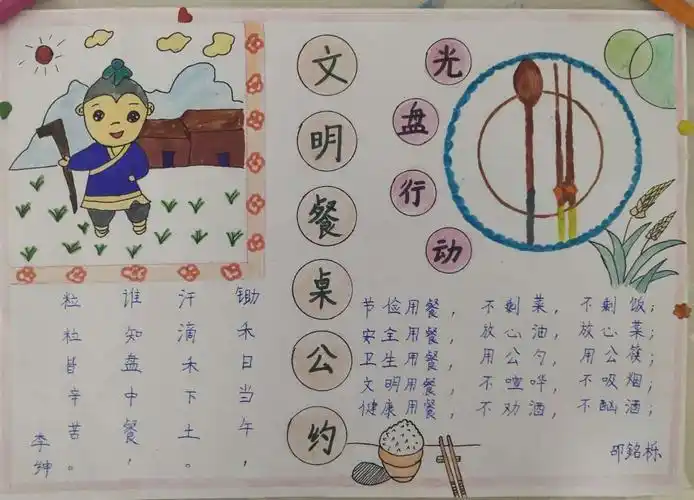 文明餐桌公约
光盘行动
锄禾日当午，
汗滴禾下土。
谁知盘中餐，
粒粒皆辛苦。
李绅
节俭用餐，不剩菜，不剩饭；
安全用餐，放心油，放心菜；
卫生用餐，用公勺，用公筷；
文明用餐，不喧哗，不吸烟；
健康用餐，不劝酒，不酗酒；
邵銘栎